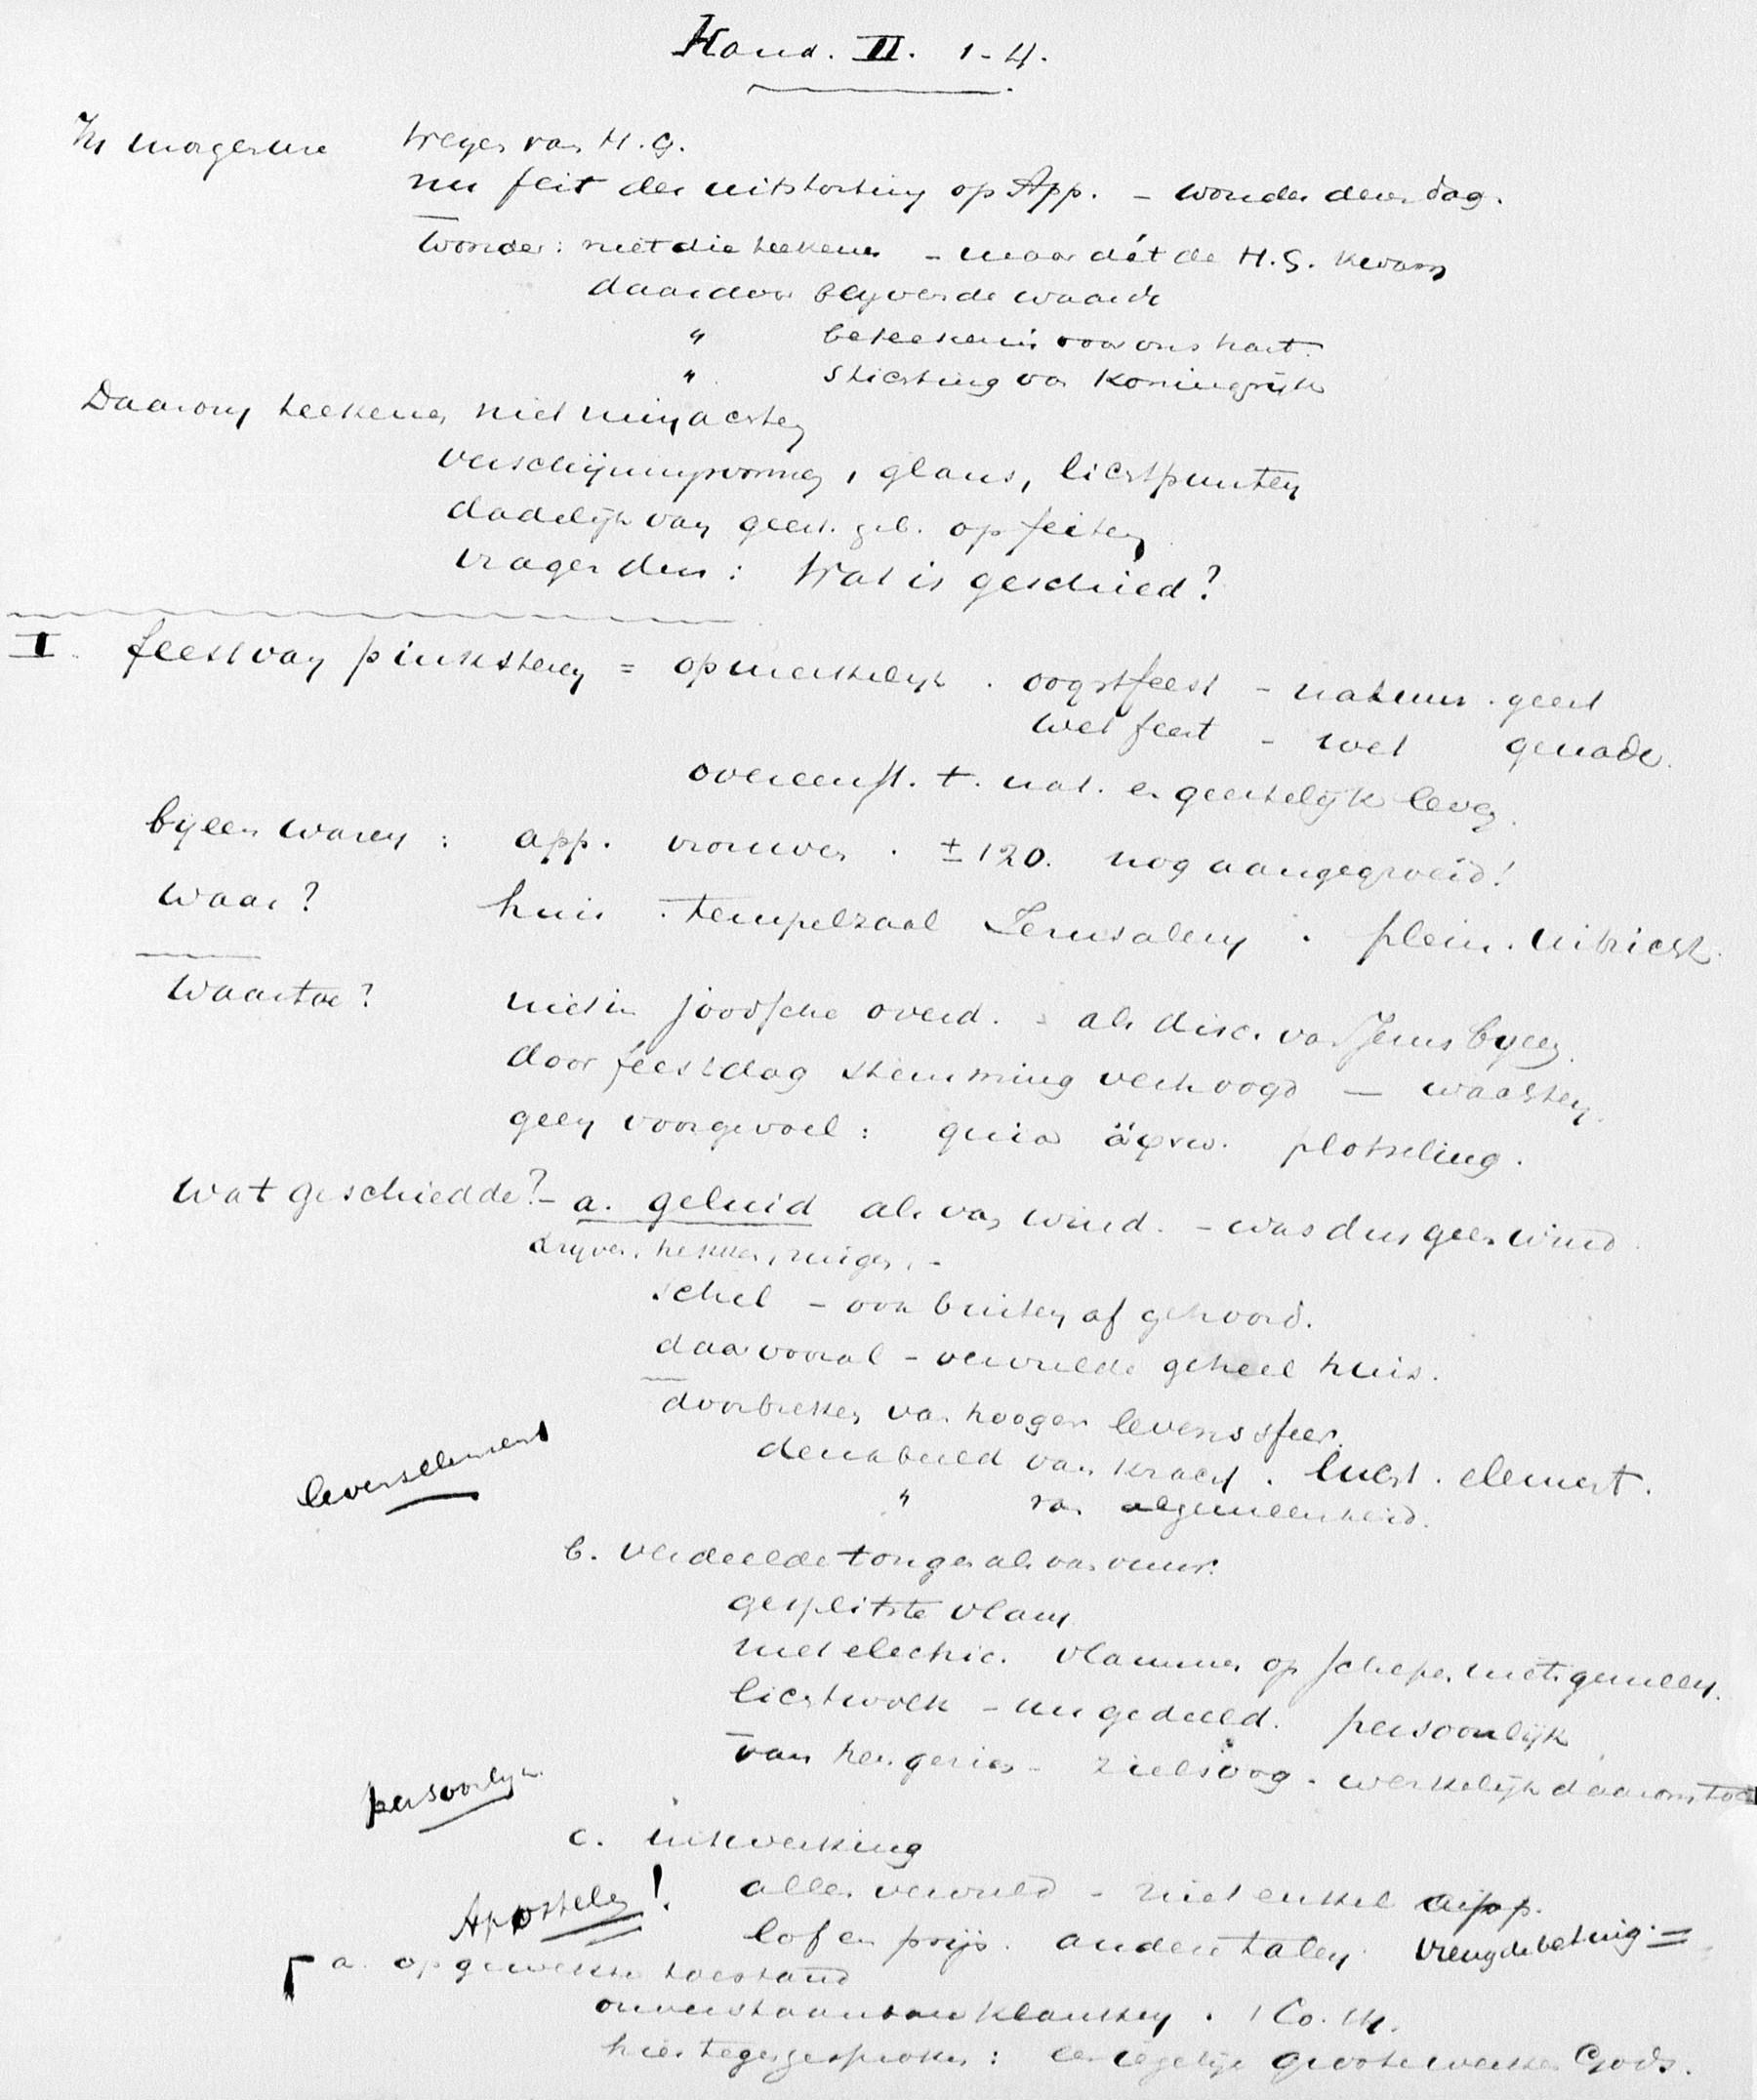 Hand. II. 1-4.
In morgenure wegen van H.G.
nu feit der uitstorting op App. - wonder dezer dag.
Wonder: niet die teekenen - maar dát de H.G. kwam
daardoor blijvende waarde
" beteekenis voor ons hart.
" stichting van Koningrijk
Daarom teekenen niet minachten
verschijningsvormen, glans, lichtpunten
dadelijk van geest. geb. op feiten
vragen dus: Wat is geschied?
I. feest van pinksteren = opmerkelijk. oogstfeest - natuur. geest
wetfeest - wet genade.
overeenst. t. nat. en geestelijk leven.
bijeen waren: app. vrouwen. ± 120. nog aangegroeid!
waar? huis. tempelzaal Jerusalem. plein. uitzicht.
Waartoe? niet in joodsche overd. - als disc. van Jezus bijeen.
door feestdag stemming verhoogd — wachten.
geen voorgevoel: quia ἄφνω. plotseling.
Wat geschiedde? - a. geluid als van wind. - was dus geen wind.
schel - ook buiten af gehoord.
daar vooral - vervulde geheel huis.
doorbreken van hooger levenssfeer.
denkbeeld van kracht. lucht. element.
levenselement
" van algemeenheid.
b. verdeelde tongen als van vuur.
gesplitste vlam
niet electric. vlammen op schepen. niet gemeen.
lichtwolk - nu gedeeld. persoonlijk
van hen gezien - zielsoog. werkelijk daarom toch
persoonlijk
c. uitwerking
allen vervuld - niet enkel app.
Apostelen!
lof en prijs. andere talen. vreugdebetuig. =
a. opgewekte toestand
onverstaanbare klanken. 1 Co. 14.
hiertegen gesproken: een iegelijk groote werken Gods.